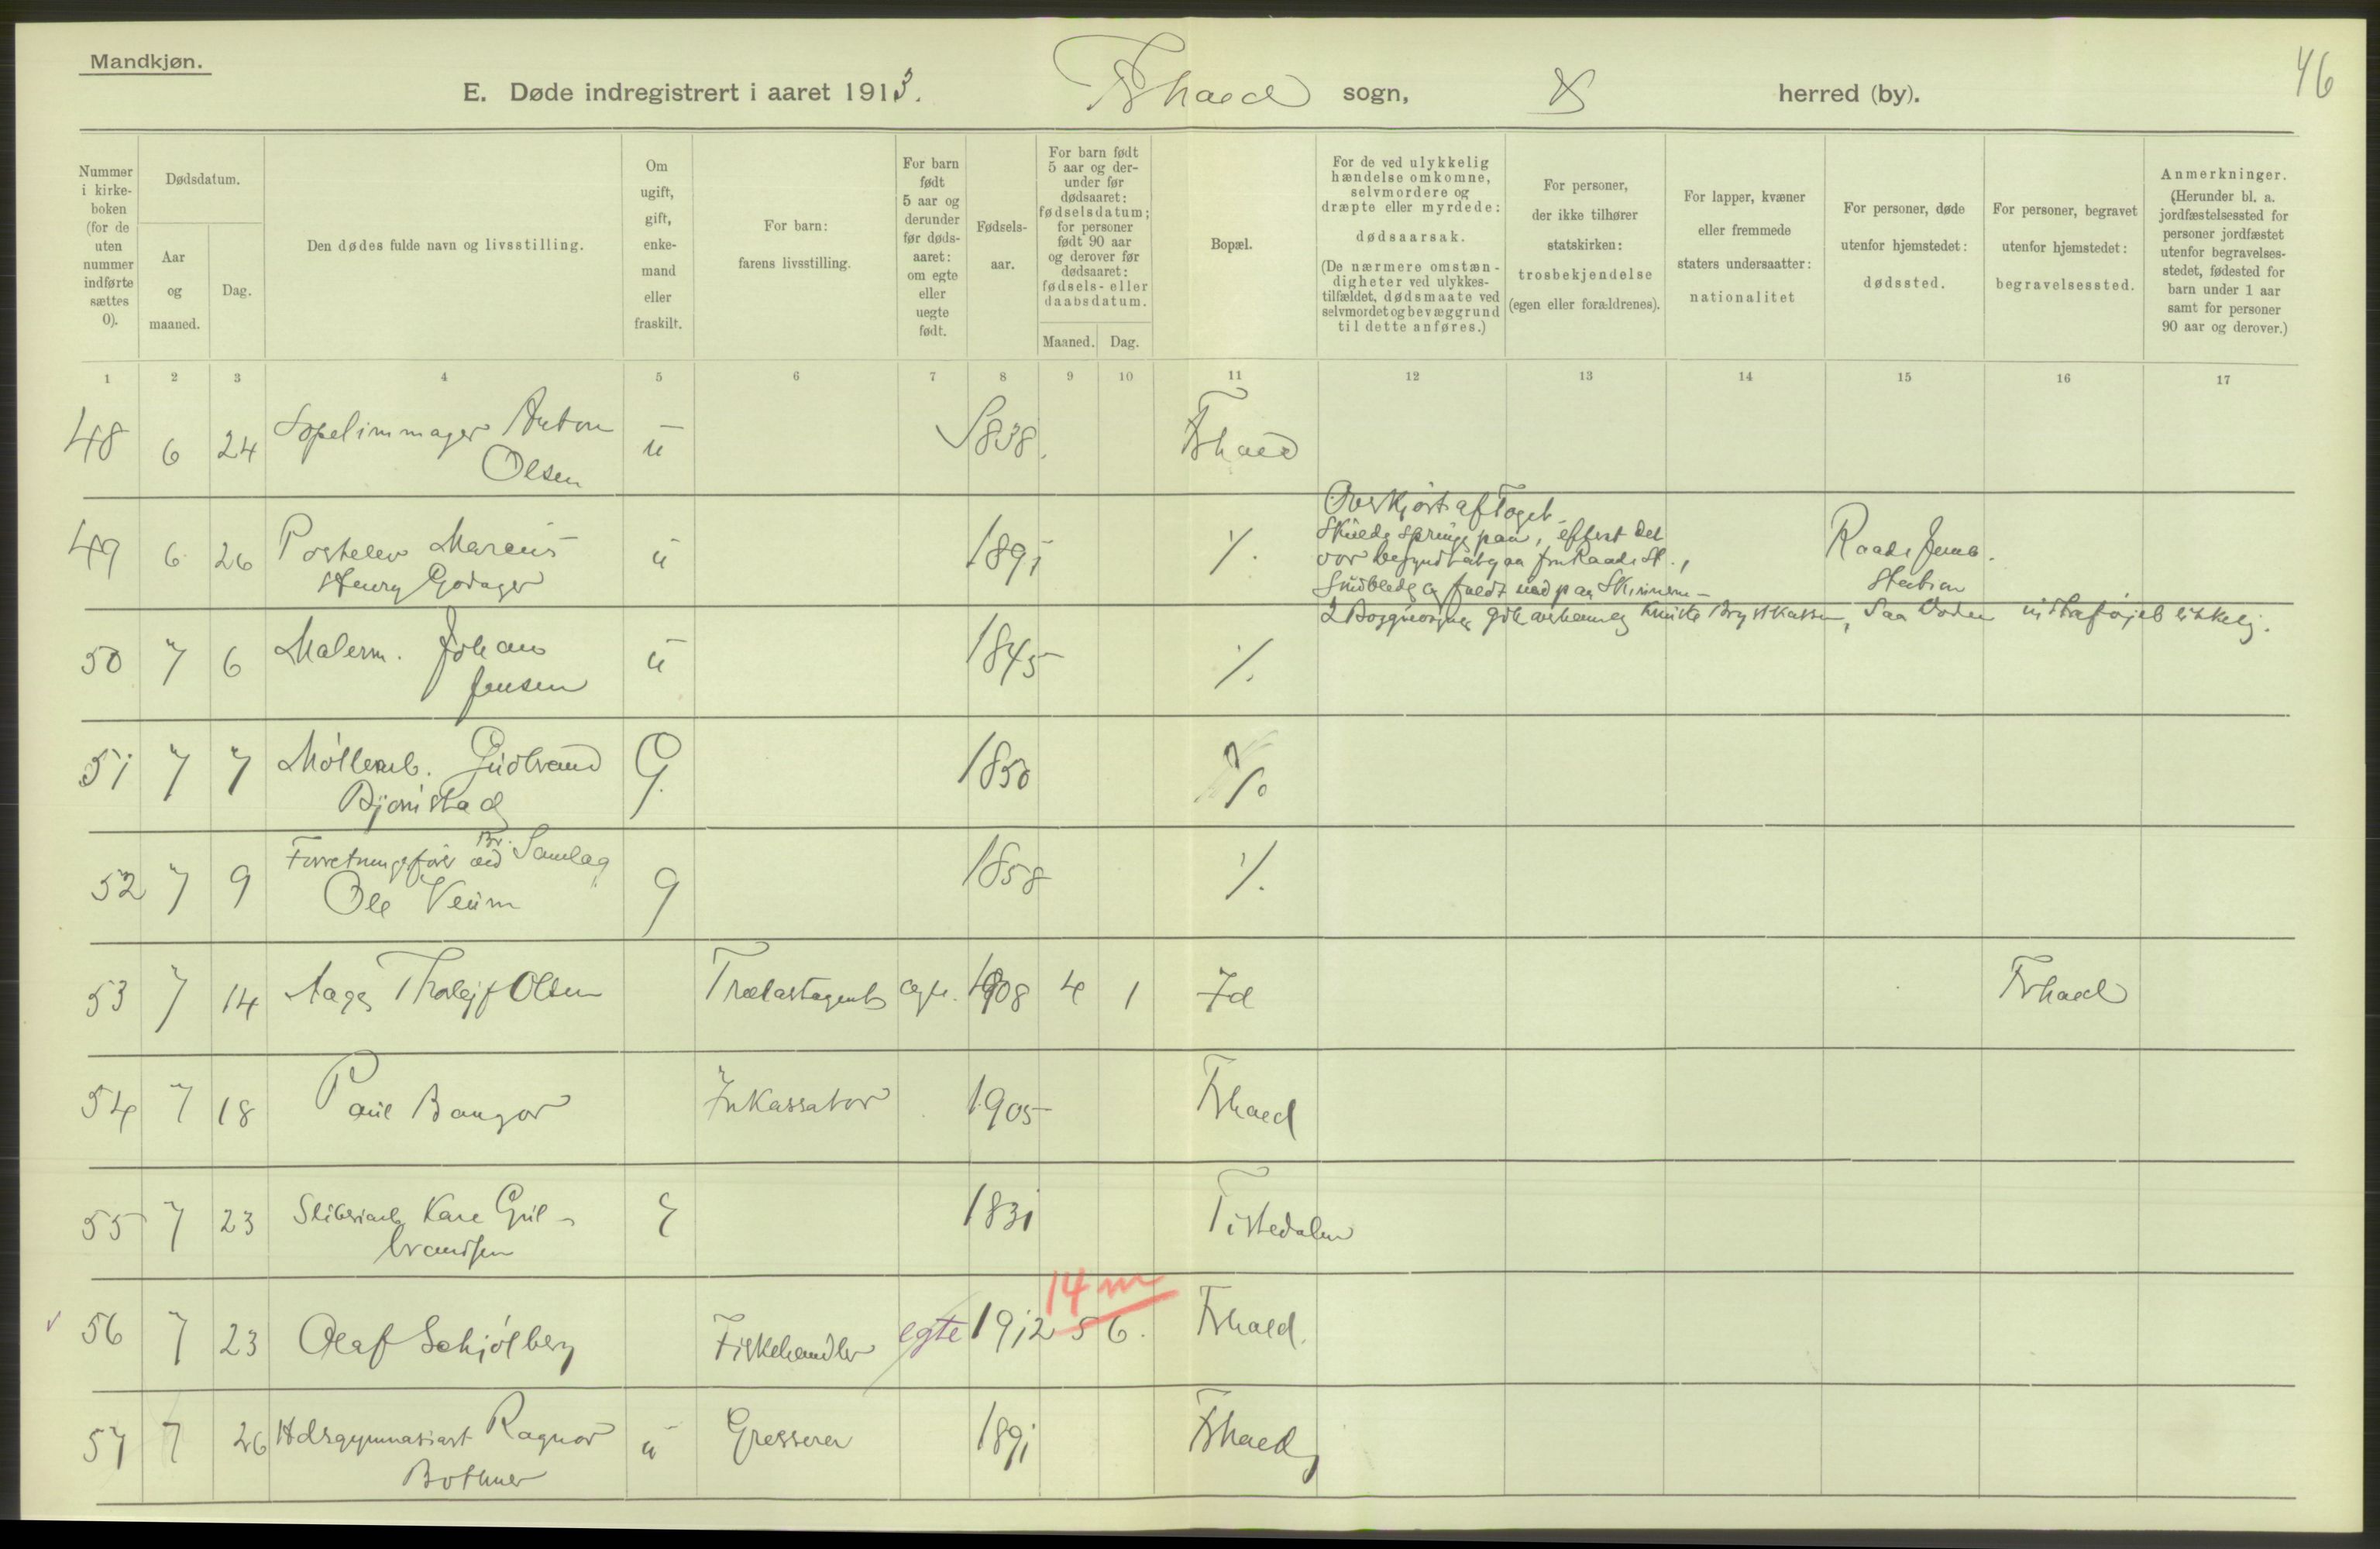 Mandkjøn.
46
E. Døde indregistrert i aaret 1913. Fhald sogn, herred (by).
Nummer i kirkeboken (for de uten nummer indførte sættes 0).
Dødsdatum.
Aar og maaned.
Dag.
Den dødes fulde navn og livsstilling.
Om ugift, gift, enkemand eller fraskilt.
For barn: farens livsstilling.
For barn født 5 aar og derunder før dødsaaret: om egte eller uegte født.
Fødselsaar.
For barn født 5 aar og derunder før dødsaaret: fødselsdatum; for personer født 90 aar og derover før dødsaaret: fødsels- eller daabsdatum.
Maaned.
Dag.
Bopæl.
For de ved ulykkelig hændelse omkomne, selvmordere og dræpte eller myrdede: dødsaarsak. (De nærmere omstændigheter ved ulykkestilfældet, dødsmaate ved selvmordet og bevæggrund til dette anføres.)
For personer, der ikke tilhører statskirken: trosbekjendelse (egen eller forældrenes).
For lapper, kvæner eller fremmede staters undersaatter: nationalitet
For personer, døde utenfor hjemstedet: dødssted.
For personer, begravet utenfor hjemstedet: begravelsessted.
Anmerkninger. (Herunder bl. a. jordfæstelsessted for personer jordfæstet utenfor begravelsesstedet, fødested for barn under 1 aar samt for personer 90 aar og derover.)
1 2 3 4 5 6 7 8 9 10 11 12 13 14 15 16 17
48 6 24 Anton u 1838. Fhald
Olsen
Overkjørt af Toget
49 6 26 Postelev Marcus u 1891 ⁒ Skulde springe paa, efterat det Raade Jernb.
Henry Godager var begyndt at gaa fra Raade St., Station
Snublede og faldt ned paa Skinnerne
2 Boggievogner gik over ham og knuste Brystkassen, saa Døden
50 7 6 Malerm. Johan u 1845 ⁒
Jensen
51 7 7 Møllearb. Gudbrand G. 1850 ⁒
Bjørnstad
52 7 9 Forretningsfører ved Br. Samlag g 1858 ⁒
Ole Veum
53 7 14 Aage Thorleif Olsen Trælastagent egte. 1908 4 1 Id Frhald
54 7 18 Paul Bangor Inkassator 1905 Frhald
55 7 23 Sliberiarb. Kare Gul- E 1831 Tistedalen
brandsen
14 m
56 7 23 Olaf Schjølberg Fiskehandler egte 1912 5 6. Frhald.
57 7 26 Hdsgymnasiast Ragnar u Grosserer 1891 Frhald
Bothner